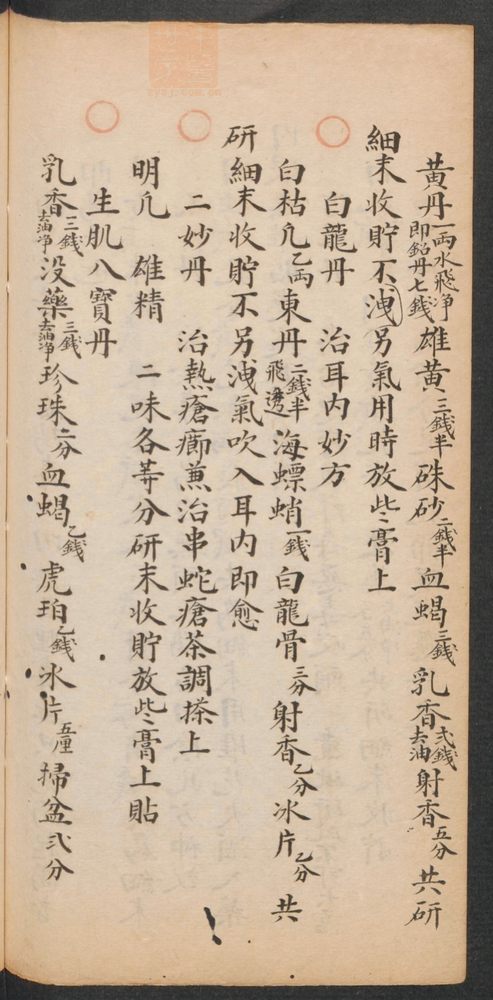 黃丹一両水飛净即鉛丹七錢雄黃三錢半硃砂二錢半血蝎三錢乳香弍錢去油射香五分共研
細末收貯不洩另氣用時放此膏上
白龍丹 治耳内妙方
白枯凢乙両東丹二錢半飛透海螵蛸一錢白龍骨三分射香乙分冰片乙分共
研細末收貯不另洩氣吹入耳内即愈
二妙丹 治熱瘡癤兼治串蛇瘡茶調搽上
明凢 雄精 二味各等分研末收貯放此膏上貼
生肌八寶丹
乳香三錢去油净没藥三錢去油净珍珠二分血蝎乙錢虎珀乙錢冰片五厘掃盆弍分